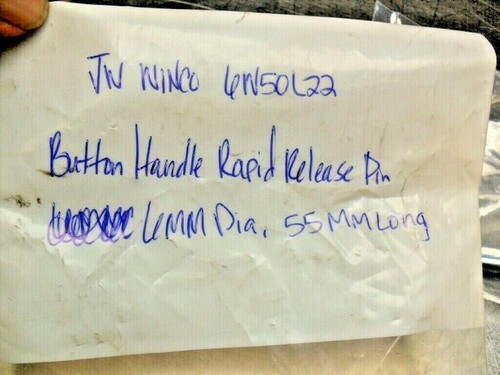 JW WINCO 6N50L22
Button Handle Rapid Release Pin
6MM Dia. 55MM Long